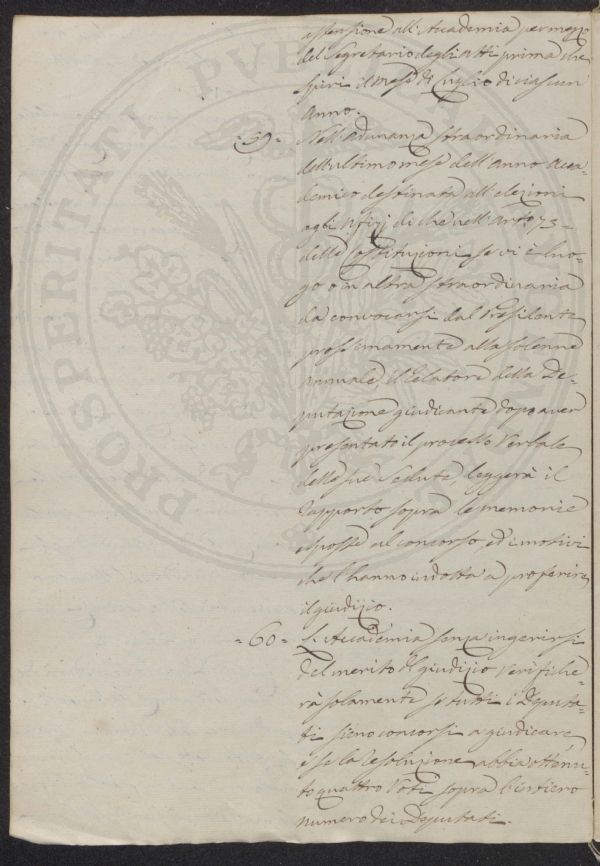 estensione all'Accademia per mezzo
del Segretario degli atti prima che
spiri il mese di Luglio di ciascun
Anno.
=59= Nell'adunanza straordinaria
dell'ultimo mese dell'anno Acca-
demico destinata all'elezioni
agli Ufizj di che nell'Art.º 73=
delle Costituzioni se vi è luo-
go o in altra straordinaria
da convocarsi dal Presidente
prossimamente alla solenne
annuale, il Relatore della De-
putazione giudicante dopo aver
presentato il processo Verbale
delle sue Sedute, leggerà il
rapporto sopra le memorie
esposte al concorso ed i motivi
che l'hanno indotta a proferire
il giudizio.
=60= L'Accademia senza ingerirsi
del merito del giudizio verifiche-
rà solamente se tutti i Deputa-
ti sieno concorsi a giudicare
e se la resoluzione abbia ottenu-
to quattro Voti sopra l'intiero
numero dei Deputati.
PROSPERITATI PUBLICAE